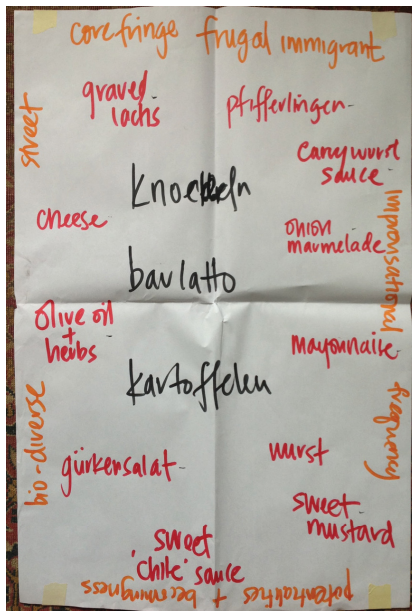 core fringe frugal immigrant
graved
lachs
pfifferlingen
street
currywurst
sauce
cheese
onion
marmelade
improvisational
bavlatto
olive oil
+
herbs
mayonnaise
kartoffelen
bio-diverse
frequency
gürkensalat
wurst
sweet
mustard
sweet
'chile' sauce
potentialities + becomingness